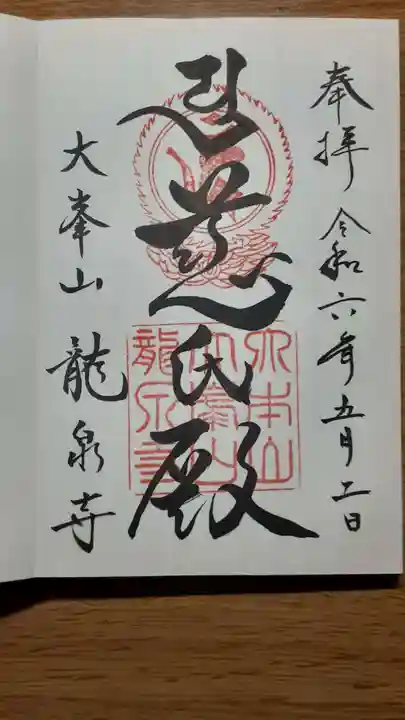 奉拝 令和六年五月二日
慈氏殿
大峯山 龍泉寺
大本山
大峯山
龍泉寺